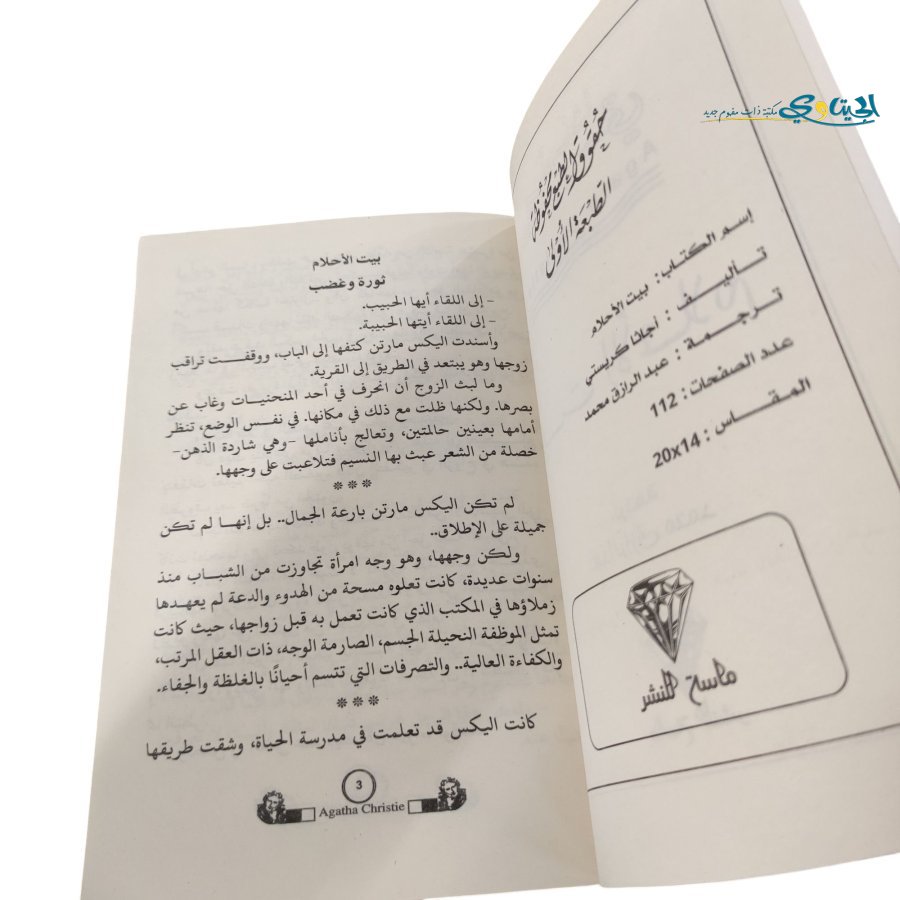 الجيتاوي مكتبة ذات مفهوم جديد
حُقُوقُ الطَّبْعِ مَحْفُوظَة
الطَّبْعَة الأُولَى
إسم الكتاب: بيت الأحلام
تأليف: أجاثا كريستي
ترجمة: عبد الرازق محمد
عدد الصفحات: 112
المقاس: 20x14
ماسة للنشر
بيت الأحلام
ثورة وغضب
- إلى اللقاء أيها الحبيب.
- إلى اللقاء أيتها الحبيبة.
وأسندت اليكس مارتن كتفها إلى الباب، ووقفت تراقب
زوجها وهو يبتعد في الطريق إلى القرية.
وما لبث الزوج أن انحرف في أحد المنحنيات وغاب عن
بصرها. ولكنها ظلت مع ذلك في مكانها. في نفس الوضع، تنظر
أمامها بعينين حالمتين، وتعالج بأناملها -وهي شاردة الذهن-
خصلة من الشعر عبث بها النسيم فتلاعبت على وجهها.
***
لم تكن اليكس مارتن بارعة الجمال.. بل إنها لم تكن
جميلة على الإطلاق..
ولكن وجهها، وهو وجه امرأة تجاوزت من الشباب منذ
سنوات عديدة، كانت تعلوه مسحة من الهدوء والدعة لم يعهدها
زملاؤها في المكتب الذي كانت تعمل به قبل زواجها، حيث كانت
تمثل الموظفة النحيلة الجسم، الصارمة الوجه، ذات العقل المرتب،
والكفاءة العالية.. والتصرفات التي تتسم أحيانًا بالغلظة والجفاء.
***
كانت اليكس قد تعلمت في مدرسة الحياة، وشقت طريقها
3
Agatha Christie